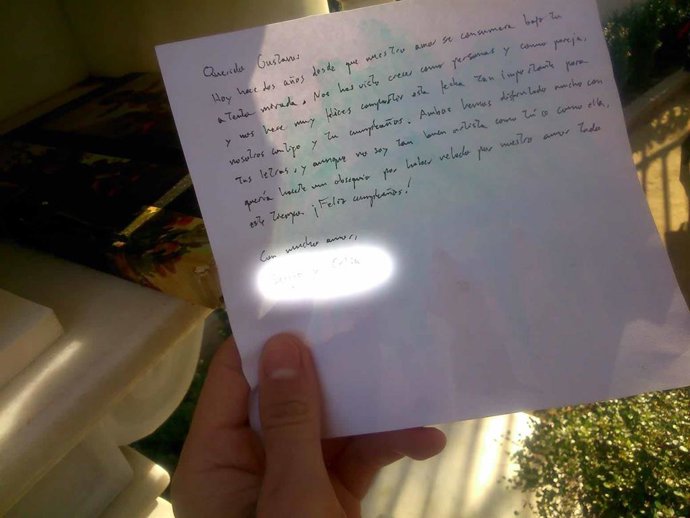 Querido Gustavo:
Hoy hace dos años desde que nuestro amor se consumara bajo tu
atenta mirada. Nos has visto crecer como personas y como pareja,
y nos hace muy felices compartir esta fecha tan importante para
nosotros contigo y tu cumpleaños. Ambos hemos disfrutado mucho con
tus letras, y aunque no soy tan buen artista como tú o como ella,
quería hacerte un obsequio por haber velado por nuestro amor todo
este tiempo. ¡Feliz cumpleaños!
Con mucho amor,